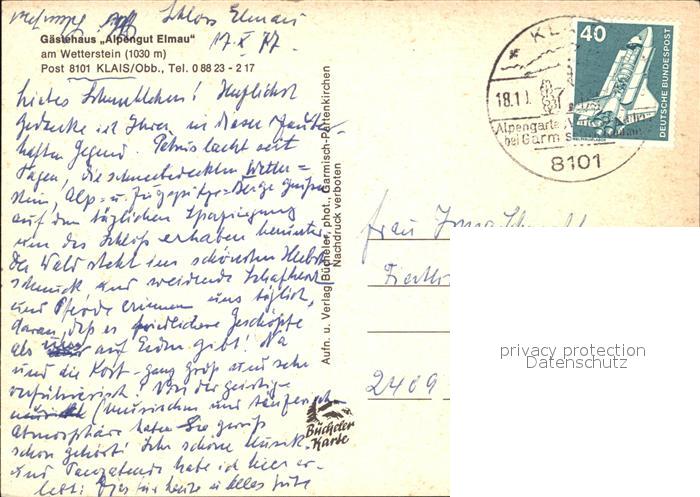 Schloss Elmau
17. X. 77.
Gästehaus „Alpengut Elmau"
am Wetterstein (1030 m)
Post 8101 KLAIS/Obb., Tel. 0 88 23 - 2 17
Liebes Schmuttchen! Herzlichst
gedenke ich Ihrer in dieser zauber-
haften Gegend. Petrus lacht seit
Tagen, die schneebedeckten Wetter-
stein, Alp- u. Zugspitz-Berge grüßen
auf dem täglichen Spaziergang
um das Schloß erhaben herunter.
Der Wald steht im schönsten Herbst-
schmuck und weidende Schafherden
und Pferde erinnern uns täglich,
daran, daß es friedlichere Geschöpfe
als uns auf Erden gibt! Na
und die Kost - ganz groß und sehr
verführerisch! Von der geistig-
(musischen und tänzerischen
Atmosphäre haben Sie gewiß
schon gehört! Sehr schöne Musik-
und Tanzabende habe ich hier er-
lebt! Dies für heute u. alles Gute
Aufn. u. Verlag Bücheler, phot., Garmisch-Partenkirchen
Nachdruck verboten
Bücheler
Karte
KL
18.1
Alpengarten
bei Garm
8101
40
DEUTSCHE BUNDESPOST
Frau
2409
privacy protection
Datenschutz